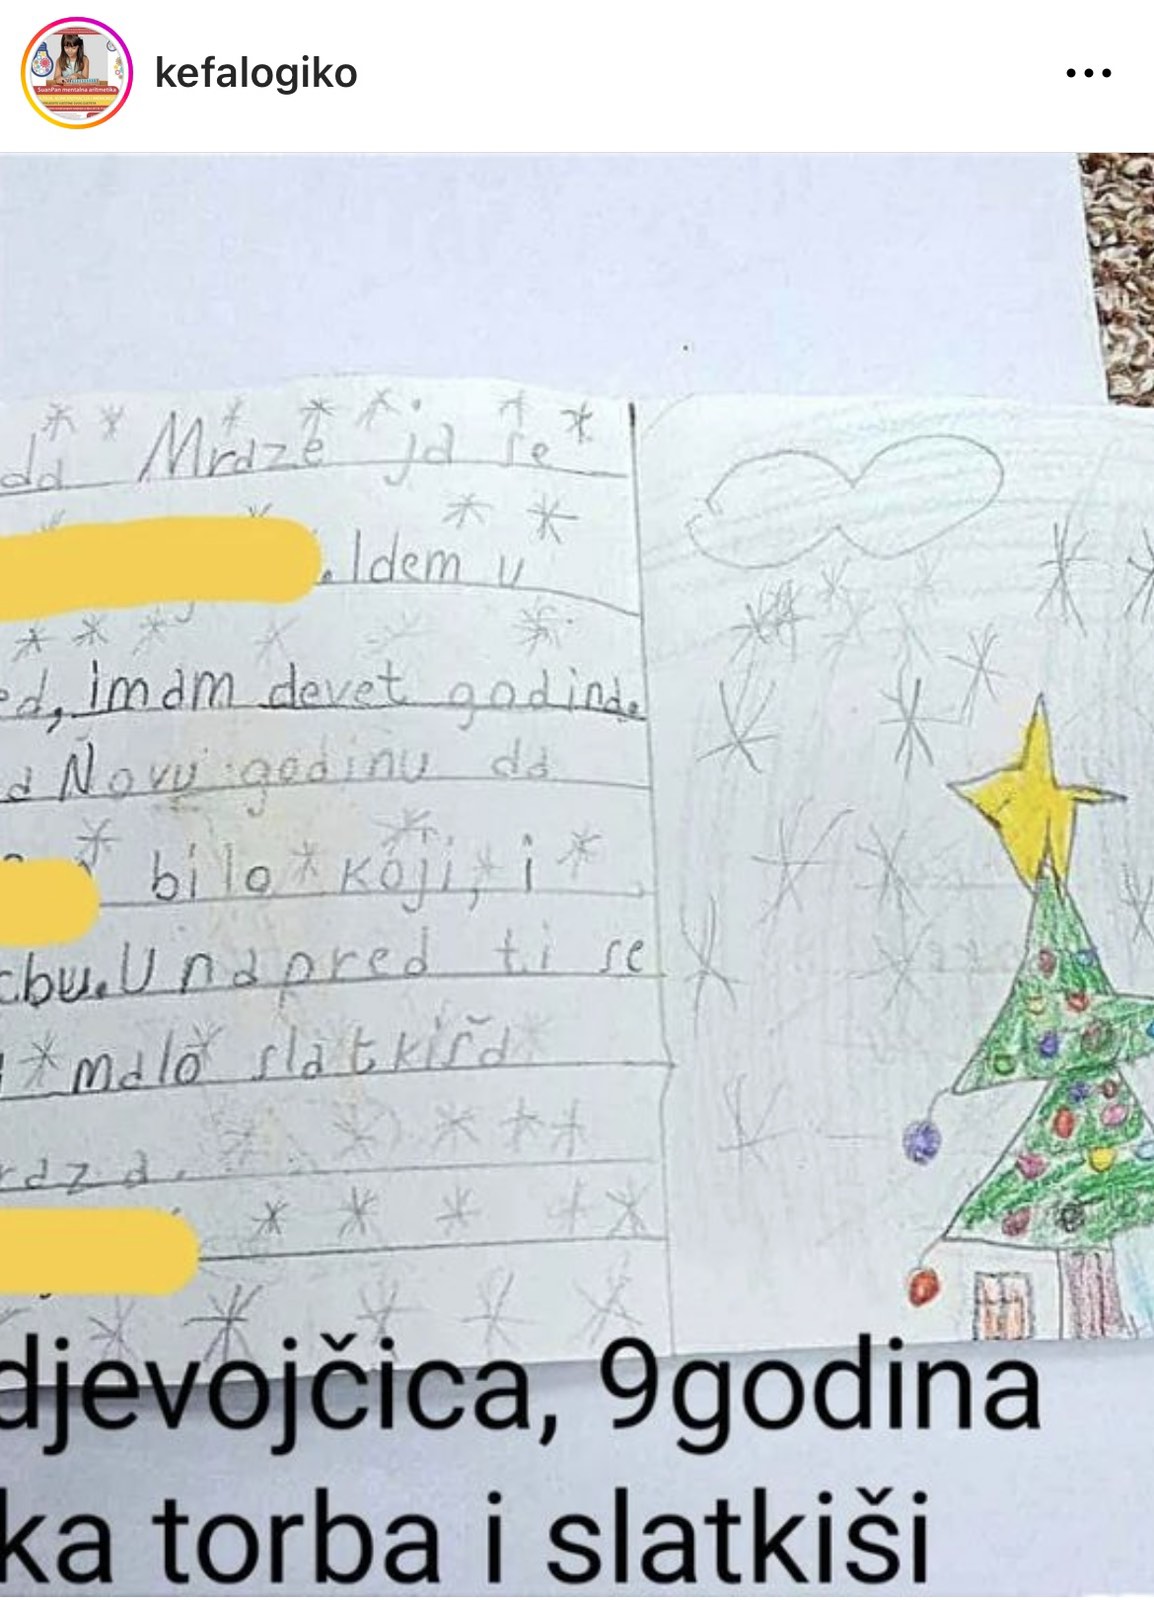 kefalogiko
SuanPan mentalna aritmetika
da Mraze ja se
. Idem u
ed, imam devet godina.
a Novu godinu da
bilo koji, i
rbu. Unapred ti se
malo slatkiša
raza.
djevojčica, 9godina
ka torba i slatkiši